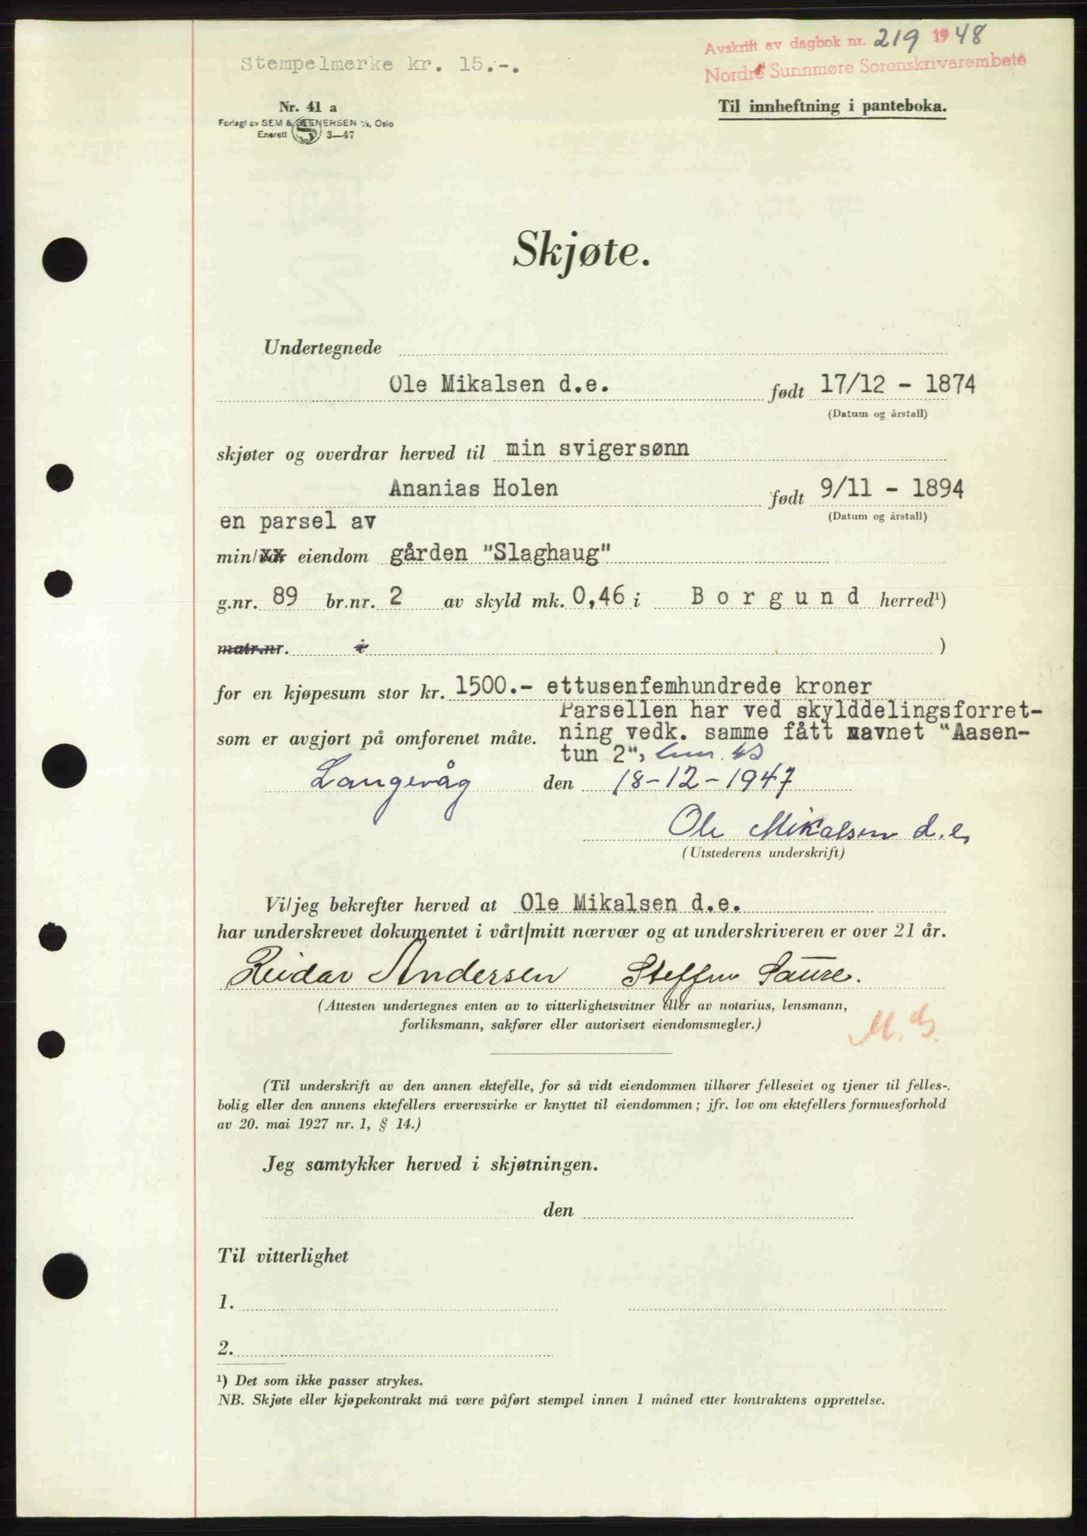 Stempelmerke kr. 15.-.
Avskrift av dagbok nr. 219 1948
Nordre Sunnmøre Sorenskrivarembete
Nr. 41 a
Forlagt av SEM & STENERSEN A/s, Oslo
Enerett S 3—47
Til innheftning i panteboka.
Skjøte.
Undertegnede
Ole Mikalsen d.e. født 17/12 - 1874
(Datum og årstall)
skjøter og overdrar herved til min svigersønn
Ananias Holen født 9/11 - 1894
(Datum og årstall)
en parsel av
min/ eiendom gården "Slaghaug"
g.nr. 89 br.nr. 2 av skyld mk. 0,46 i Borgund herred¹)
matr.nr. i )
for en kjøpesum stor kr. 1500.- ettusenfemhundrede kroner
Parsellen har ved skylddelingsforret-
som er avgjort på omforenet måte. ning vedk. samme fått navnet "Aasen-
tun 2",
Langevåg den 18-12-1947
Ole Mikalsen d.e.
(Utstederens underskrift)
Vi/jeg bekrefter herved at Ole Mikalsen d.e.
har underskrevet dokumentet i vårt/mitt nærvær og at underskriveren er over 21 år.
Reidar Andersen Steffen Saure.
(Attesten undertegnes enten av to vitterlighetsvitner eller av notarius, lensmann,
forliksmann, sakfører eller autorisert eiendomsmegler.)
(Til underskrift av den annen ektefelle, for så vidt eiendommen tilhører felleseiet og tjener til felles-
bolig eller den annens ektefellers ervervsvirke er knyttet til eiendommen; jfr. lov om ektefellers formuesforhold
av 20. mai 1927 nr. 1, § 14.)
Jeg samtykker herved i skjøtningen.
den
Til vitterlighet
1.
2.
¹) Det som ikke passer strykes.
NB. Skjøte eller kjøpekontrakt må være påført stempel innen 1 måned etter kontraktens opprettelse.